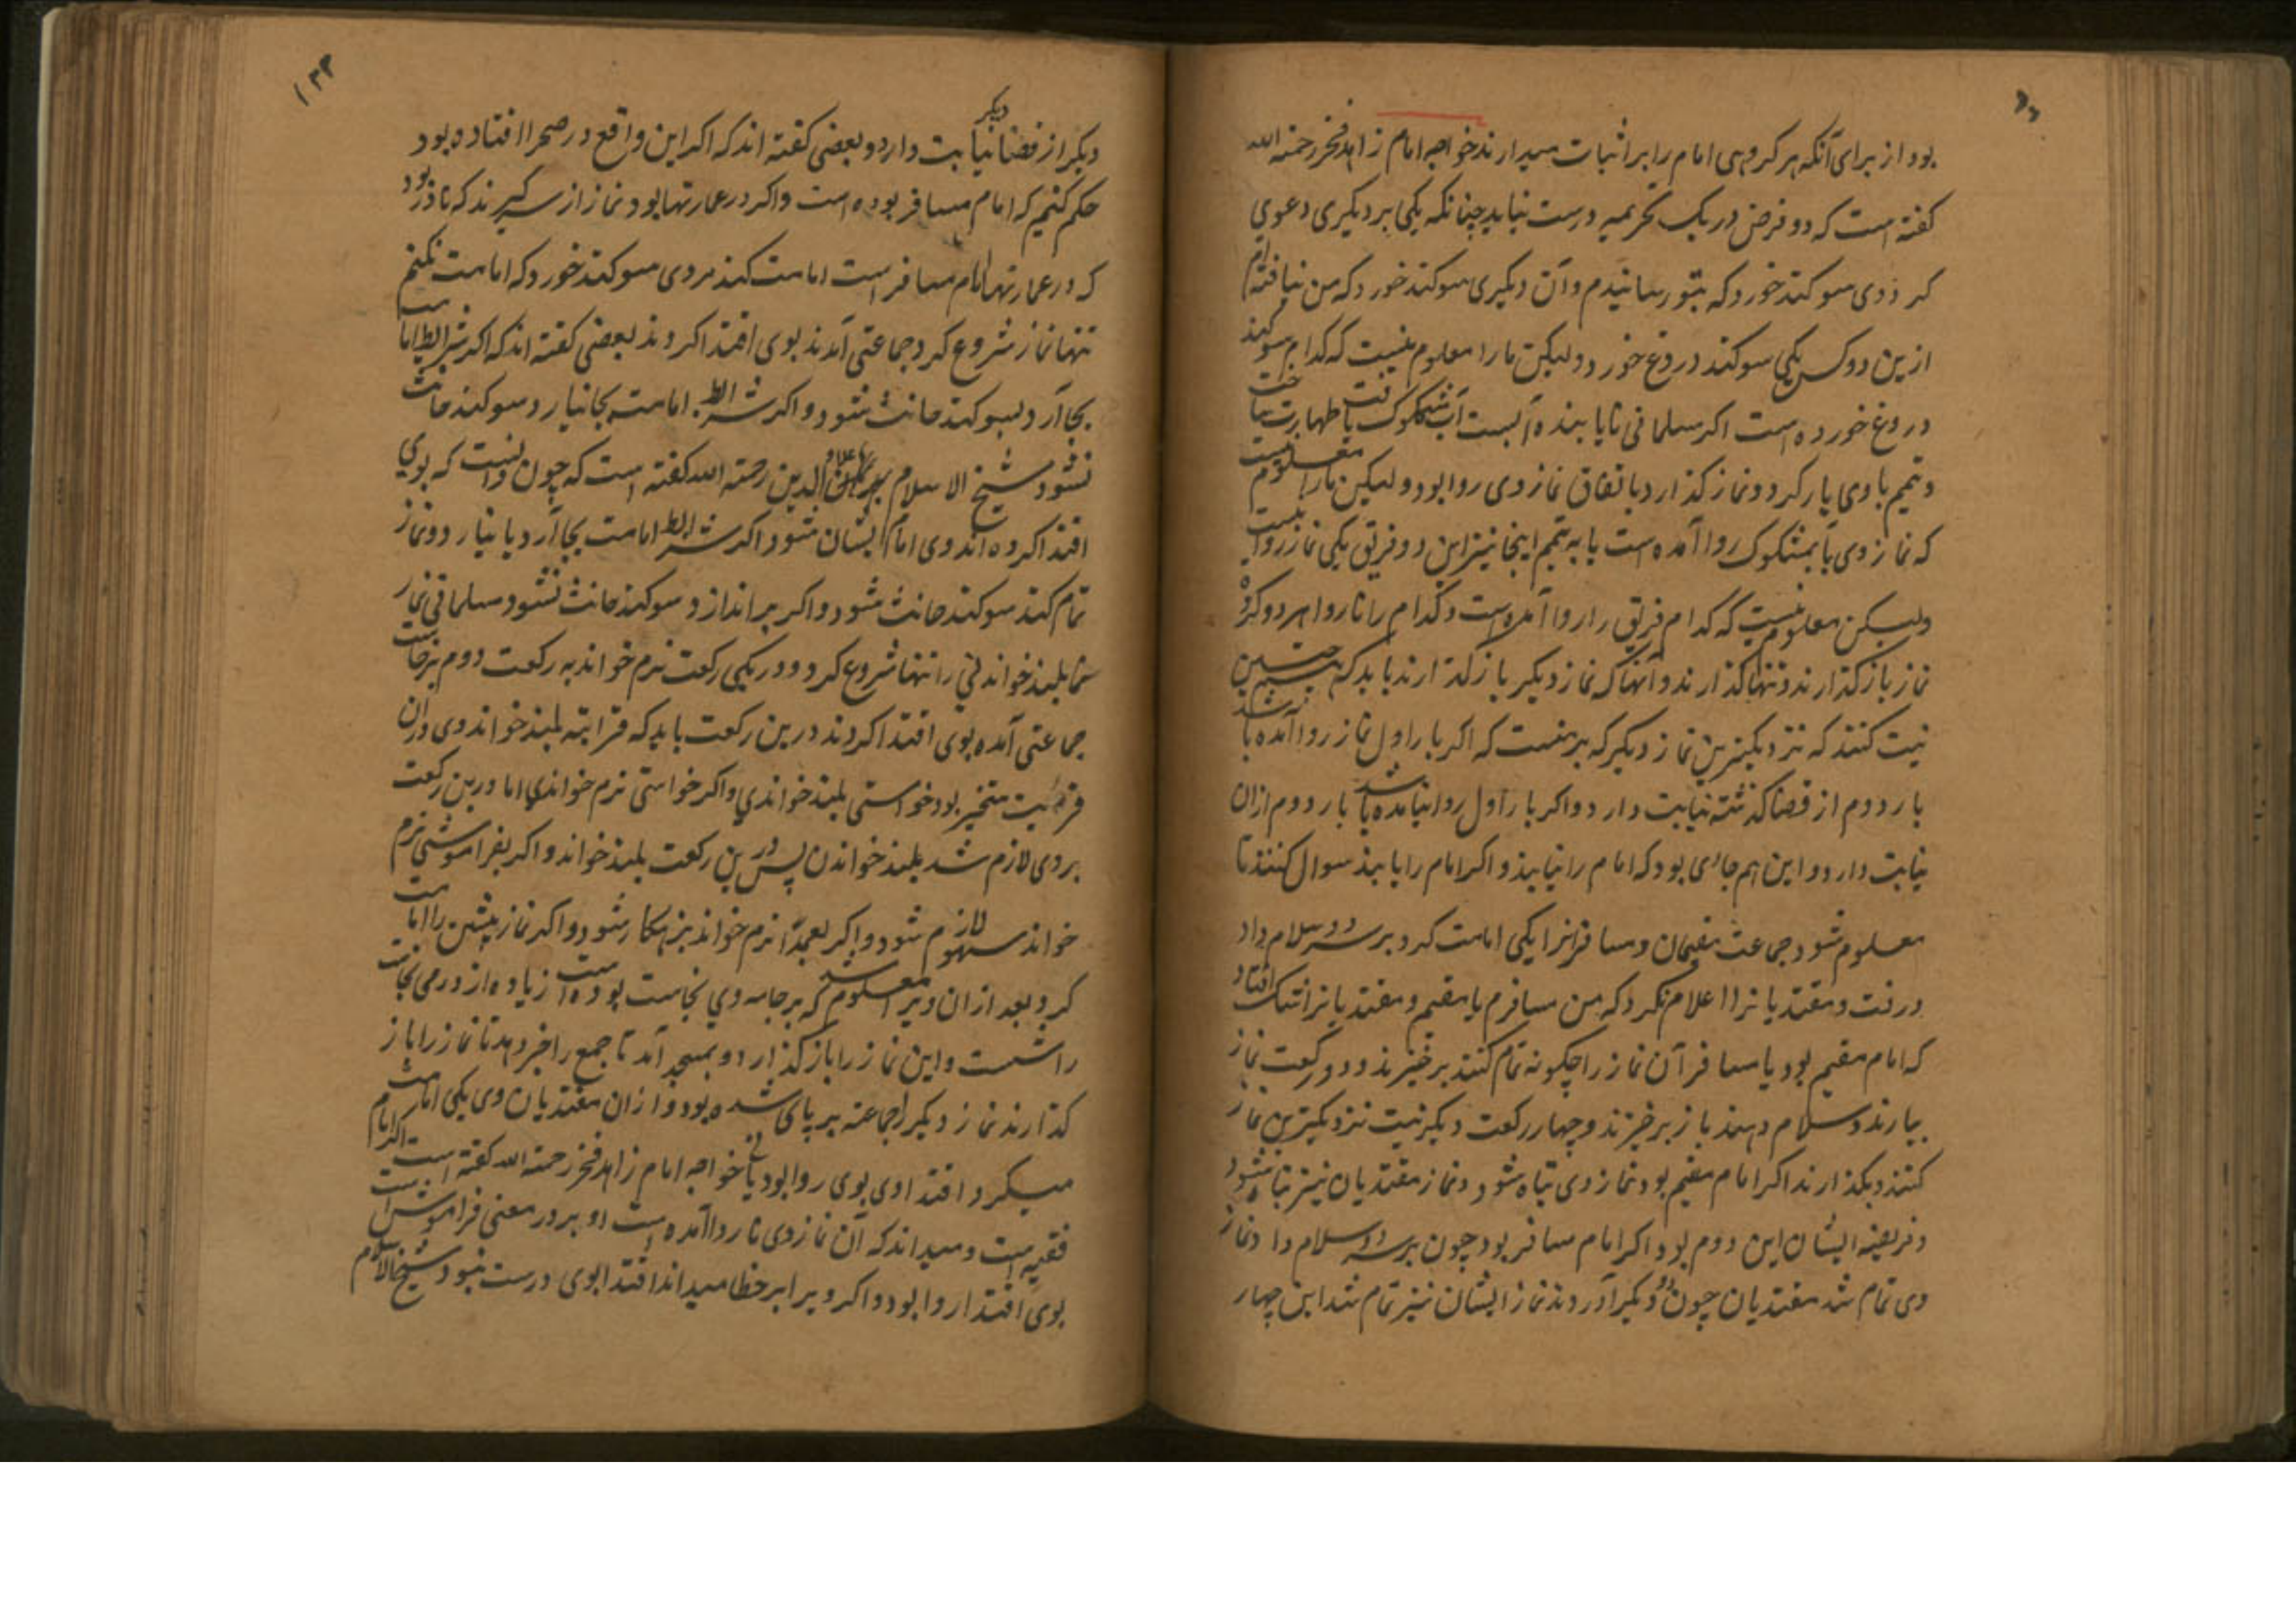 بود از برای آنکه هر کروهی امام را بر اثبات میدارند خواجه امام زاهد فخر رحمته الله
کفته است که دو فرض در یک تحریمه درست نیاید چنانکه یکی بر دیکری دعوی
کرد وی سوکند خورد که بتو رسانیدم وآن دیکری سوکند خورد که من نیافته ام
ازین دو کس یکی سوکند دروغ خورد ولیکن مارا معلوم نیست که کدام سوکند
دروغ خورده است اکر مسلمانی نایابنده آبست آب مشکوک یافت طهارت ساخت
وتیمم باوی یار کرد ونماز کذارد باتفاق نماز وی روا بود ولیکن مارا معلوم نیست
که نماز وی بآب مشکوک روا آمده است یا به تیمم اینجا نیز این دو فریق یکی نماز روا نیست
ولیکن معلوم نیست که کدام فریق را روا آمده است وکدام را ناروا هر دو کروه
نماز باز کذارند وتنها کذارند وآنها که نماز دیکر باز کذارند باید که چنین
نیت کنند که نزدیکترین نماز دیکر که بر منست که اکر بار اول نماز روا آمده باشد
بار دوم از قضا کذشته نیابت دارد واکر بار اول روا نیامده باشد بار دوم ازان
نیابت دارد واین هم جای بود که امام را نیابند واکر امام را یابند سوال کنند تا
معلوم شود جماعت مقیمان ومسافرانرا یکی امامت کرد بر سر دو سلام داد
ورفت ومقتدیانرا اعلام نکرد که من مسافرم یا مقیم ومقتدیانرا شک افتاد
که امام مقیم بود یا مسافر آن نماز را چکونه تمام کنند برخیزند ودو رکعت نماز
بیارند وسلام دهند باز برخیزند وچهار رکعت دیکر نیت نزدیکترین نماز
کنند وبکذارند اکر امام مقیم بود نماز وی تباه شود ونماز مقتدیان نیز تباه شود
وفریضه ایشان این دوم بود واکر امام مسافر بود چون بر سر دو سلام داد ونماز
وی تمام شد مقتدیان چون دو دیکر آوردند نماز ایشان نیز تمام شد این چهار
۱۳۳
دیکر از قضا دیکر نیابت دارد وبعضی کفته اند که اکر این واقع در صحرا افتاده بود
حکم کنیم که امام مسافر بوده است واکر در عمارتها بود نماز از سر کیرند که نادر بود
که در عمارتها امام مسافر است امامت کند مردی سوکند خورد که امامت نکنم
تنها نماز شروع کرد جماعتی آمدند بوی اقتدا کردند بعضی کفته اند که اکر شرایط امامت
بجا آرد بسوکند حانث شود واکر شرایط امامت بجا نیارد سوکند حانث
نشود شیخ الاسلام برهان الدین رحمته الله کفته است که چون دانست که بوی
اقتدا کرده اند وی امام ایشان شود اکر شرایط امامت بجا آرد یا نیارد ونماز
تمام کند سوکند حانث شود واکر براندازد سوکند حانث نشود مسلمانی نماز
بلند خواندنی را تنها شروع کرد ودر یکی رکعت نرم خواند به رکعت دوم برخاست
جماعتی آمده بوی اقتدا کردند درین رکعت باید که قرأته بلند خواند وی دران
قرأیت متخیر بود خواستی بلند خواندی واکر خواستی نرم خواندی اما درین رکعت
بروی لازم شد بلند خواندن پس درین رکعت بلند خواند واکر بفراموشی نرم
خواند سهو لازم شود واکر بعمدًا نرم خواند بزهکار شود واکر نماز پیشین را امامت
کرد بعد ازان ویرا معلوم شد که بر جامه وی نجاست بوده است زیاده از درمی نجاست
را شست واین نماز را باز کذارد وبمسجد آمد تا جمع را خبر دهد تا نماز را باز
کذارند نماز دیکر را جماعته برپای شده بود وازان مقتدیان وی یکی امامت
میکرد اقتدا وی بوی روا بود یا نی خواجه امام زاهد فخر رحمته الله کفته است اکر امام
فقیه است ومیداند که آن نماز وی ناروا آمده است او بر در معنی فراموش است
بوی اقتدا روا بود واکر ویرا بر خطا میداند اقتدا بوی درست نبود شیخ الاسلام